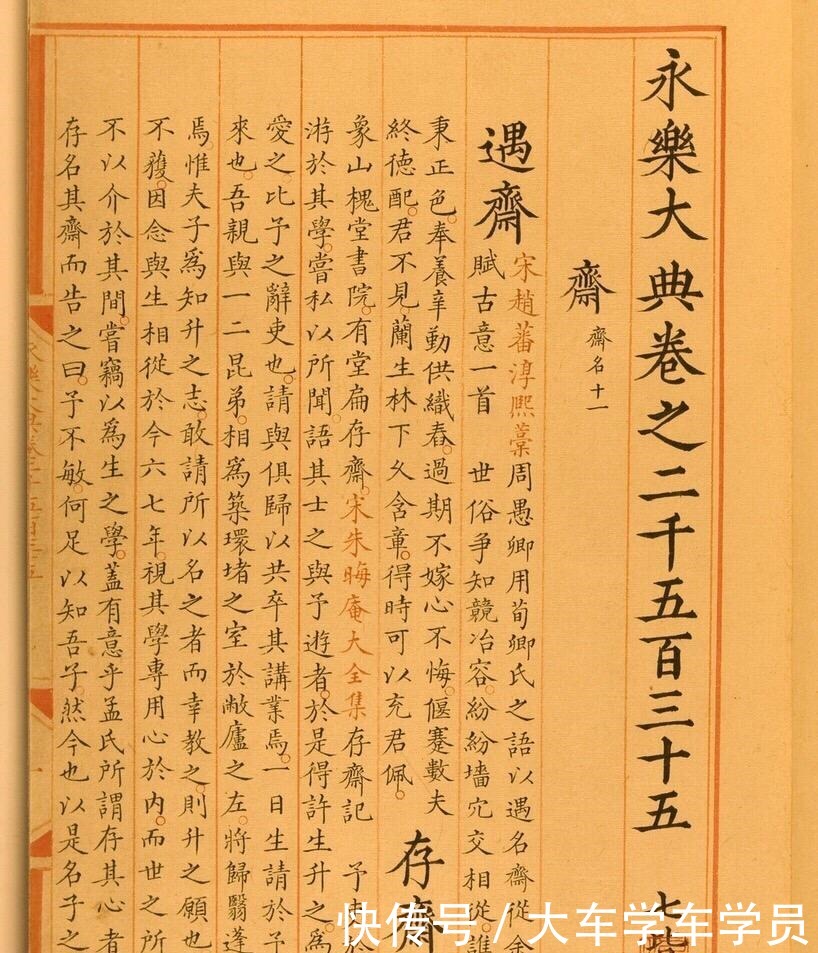 永樂大典卷之二千五百三十五 七皆
齋 齋名十一
遇齋
宋趙蕃淳熙藁周愚卿用荀卿氏之語以遇名齋從余
賦古意一首 世俗爭知競冶容。紛紛墻穴交相從。誰
秉正色。奉養辛勤供織舂。過期不嫁心不悔。偃蹇數夫
終德配。君不見。蘭生林下久含章。得時可以充君佩。
存齋
象山槐堂書院。有堂扁存齋。宋朱晦庵大全集存齋記 予吏於
游於其學。嘗私以所聞。語其士之與予遊者。於是得許生升之。爲
愛之比予之辭吏也。請與俱歸以共卒其講業焉。一日生請於予
來也。吾親與一二昆弟。相爲築環堵之室於敝廬之左。將歸翳蓬
焉。惟夫子爲知升之志。敢請所以名之者而幸教之。則升之願也
不獲。因念與生相從於今六七年。視其學專用心於內。而世之所
不以介於其間。嘗竊以爲生之學。蓋有意乎孟氏所謂存其心者
存名其齋而告之曰。予不敏。何足以知吾子。然今也以是名子之
快传号/大车学车学员